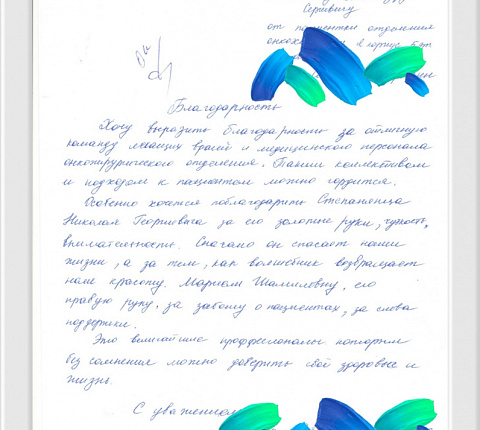 Сергеевичу
от пациентки отделения
корпус
Благодарность
Хочу выразить благодарность за отличную
команду лечащих врачей и медицинского персонала
онкохирургического отделения. Таким коллективом
и подходом к пациентам можно гордиться.
Особенно хочется поблагодарить Степанянца
Николая Георгиевича за его золотые руки, чуткость,
внимательность. Сначала он спасает наши
жизни, а за тем, как волшебник возвращает
нам красоту. Мариам Шамилевну, его
правую руку, за заботу о пациентах, за слова
поддержки.
Это величайшие профессионалы которым
без сомнения можно доверить своё здоровье и
жизнь.
С уважением